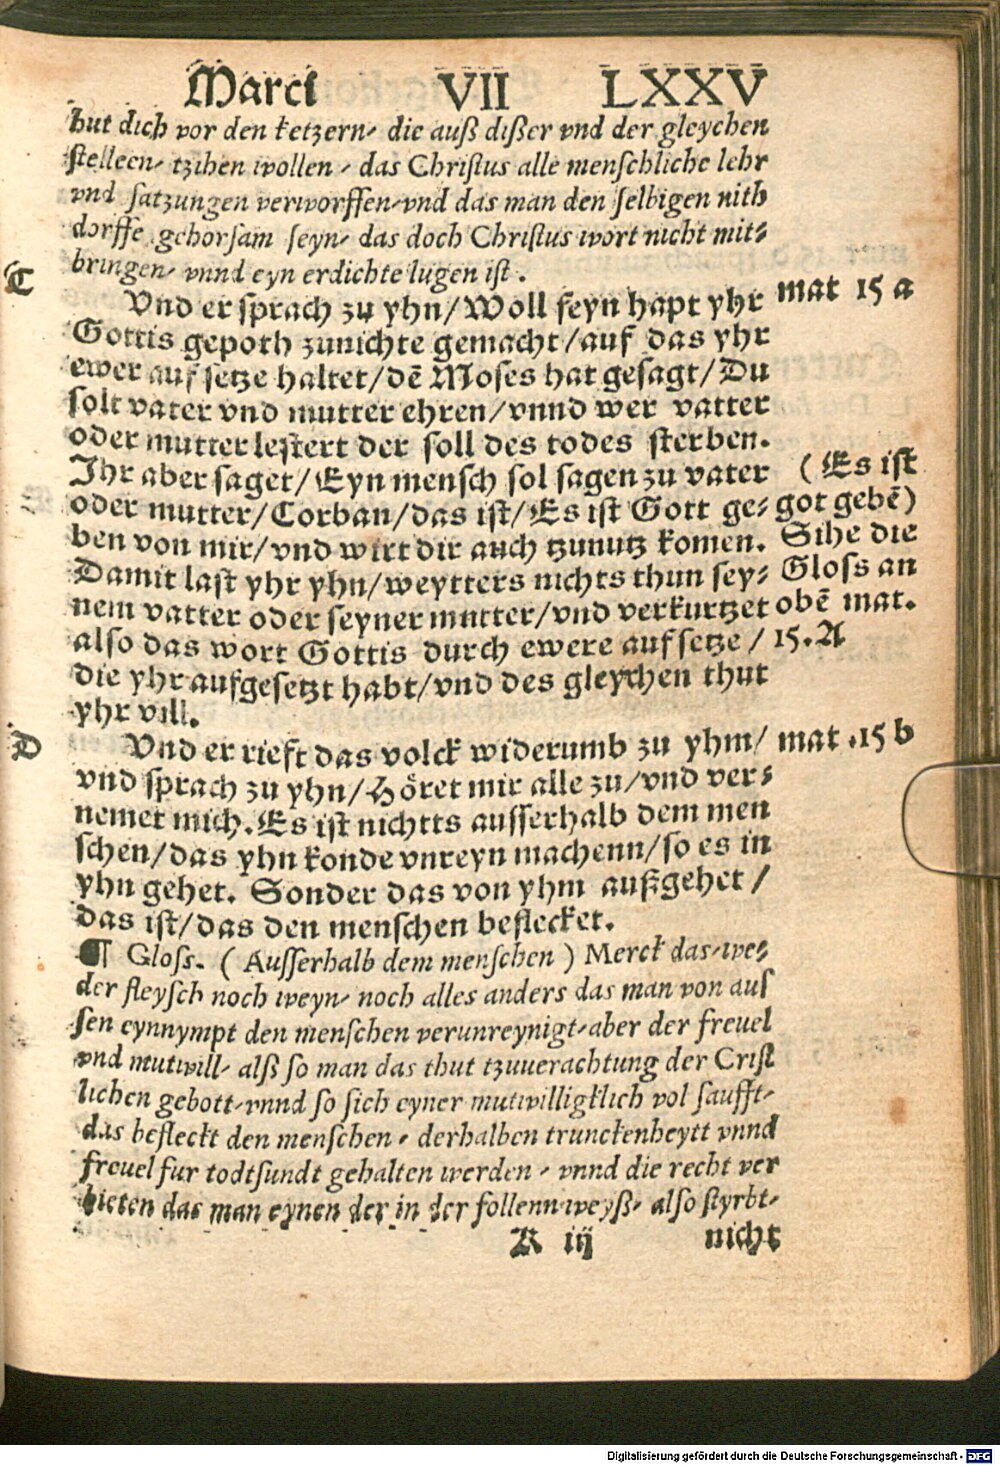 Marci VII LXXV
hut dich vor den ketzern, die auß dißer vnd der gleychen
stelleen, tzihen wollen, das Christus alle menschliche lehr
vnd satzungen verworffen, vnd das man den selbigen nith
dorffe gehorsam seyn, das doch Christus wort nicht mit⸗
bringen, vnnd eyn erdichte lugen ist.
C
Vnd er sprach zu yhn/Woll feyn hapt yhr
mat 15 a
Gottis gepoth zunichte gemacht/auf das yhr
ewer auf setze haltet/dẽ Moses hat gesagt/Du
solt vater vnd mutter ehren/vnnd wer vatter
oder mutter lestert der soll des todes sterben.
Ihr aber saget/Eyn mensch sol sagen zu vater
(Es ist
oder mutter/Corban/das ist/Es ist Gott ge⸗
got gebẽ)
ben von mir/vnd wirt dir auch tzunutz komen.
Sihe die
Damit last yhr yhn/weytters nichts thun sey⸗
Gloss an
nem vatter oder seyner mutter/vnd verkurtzet
obẽ mat.
also das wort Gottis durch ewere auf setze/
15. A
die yhr aufgesetzt habt/vnd des gleychen thut
yhr vill.
D
Vnd er rieft das volck widerumb zu yhm/
mat .15 b
vnd sprach zu yhn/Höret mir alle zu/vnd ver⸗
nemet mich. Es ist nichtts ausserhalb dem men
schen/das yhn konde vnreyn machenn/so es in
yhn gehet. Sonder das von yhm außgehet/
das ist/das den menschen beflecket.
¶ Gloss. (Ausserhalb dem menschen) Merck das, we⸗
der fleysch noch weyn, noch alles anders das man von aus
sen eynnympt den menschen verunreynigt, aber der freuel
vnd mutwill, alß so man das thut tzuuerachtung der Crist
lichen gebott, vnnd so sich eyner mutwilligklich vol saufft,
das befleckt den menschen, derhalben trunckenheytt vnnd
freuel fur todtsundt gehalten werden, vnnd die recht ver
bieten das man eynen der in der follenn weyß, also styrbt,
K iij nicht
Digitalisierung gefördert durch die Deutsche Forschungsgemeinschaft - DFG